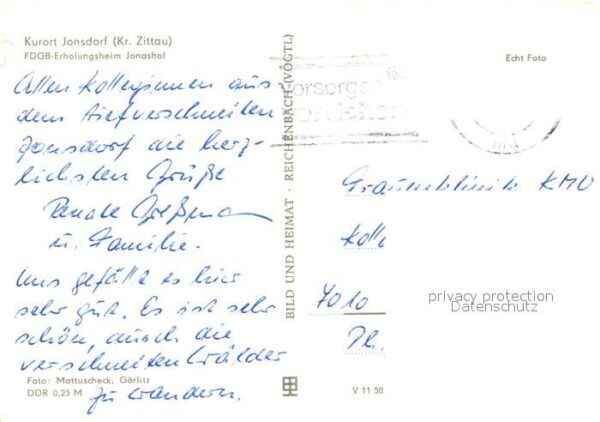 Kurort Jonsdorf (Kr. Zittau)
FDGB-Erholungsheim Jonashof
Allen Kolleginnen aus
dem tiefverschneiten
Jonsdorf die herz-
lichsten Grüße
Renate
u. Familie.
Uns gefällt es hier
sehr gut. Es ist sehr
schön, durch die
verschneiten Wälder
zu wandern.
Foto: Mattuscheck, Görlitz
DDR 0,25 M
BILD UND HEIMAT · REICHENBACH (VOGTL)
V 11 50
Echt Foto
KMU
Koll
7010
privacy protection
Datenschutz